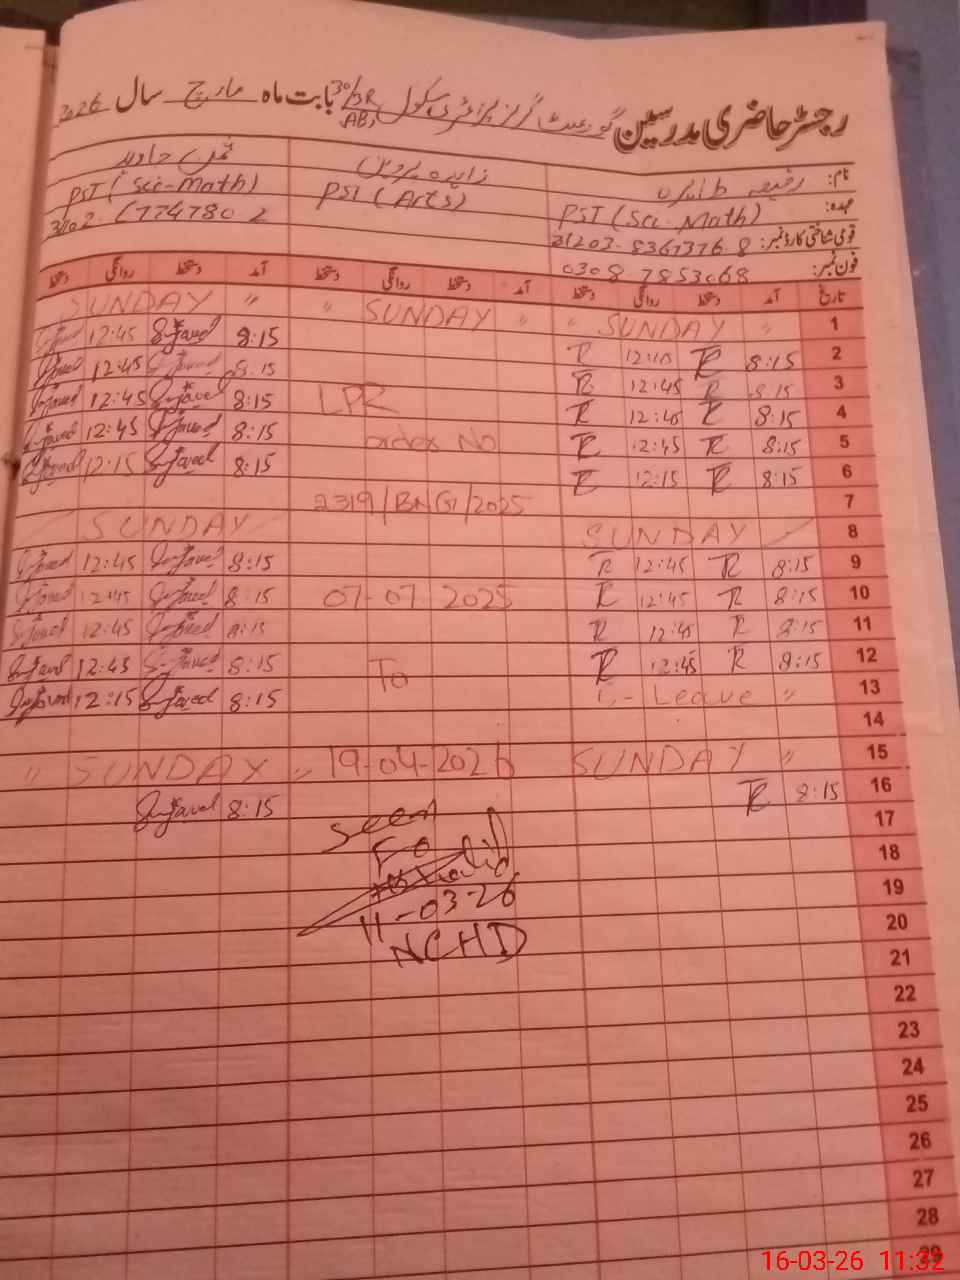 رجسٹر حاضری مدرسین گورنمنٹ گرلز پرائمری سکول 30/3R بابت ماہ مارچ سال 2026
نام: رضیہ طاہرہ زاہدہ پروین جاوید
عہدہ: PST (Sci-Math) PST (Arts) PST (Sci-Math)
قومی شناختی کارڈ نمبر: 31203-8367376-8
فون نمبر: 0308-7853068
تاریخ آمد دستخط روانگی دستخط آمد دستخط روانگی دستخط آمد دستخط روانگی دستخط
1 " SUNDAY " " SUNDAY " " SUNDAY
2 8:15 TR TR 8:15 S-Javed 12:45
3 8:15 R 12:45 R 8:15 12:45 Javed
4 8:15 R 12:45 R LPR 8:15 S-Javed 12:45 S-Javed
5 8:15 R 12:45 R order No 8:15 S-Javed 12:45 S-Javed
6 8:15 R 12:15 R 8:15 S-Javed 12:15 S-Javed
7 2319/ /2025
8 SUNDAY SUNDAY
9 8:15 TR 12:45 R 8:15 S-Javed 12:45 S-Javed
10 8:15 TR 12:45 R 07-07-2025 8:15 S-Javed 12:45 S-Javed
11 8:15 R 12:45 R 8:15 S-Javed 12:45 S-Javed
12 8:15 R 12:45 R To 8:15 S-Javed 12:45 S-Javed
13 Leave " 8:15 S-Javed 12:15 S-Javed
14
15 " SUNDAY 19-04-2026 " SUNDAY "
16 8:15 TR 8:15 S-Javed
17 Seen
18 FO
19
20 11-03-26
21 NCHD
22
23
24
25
26
27
28
29
16-03-26 11:32